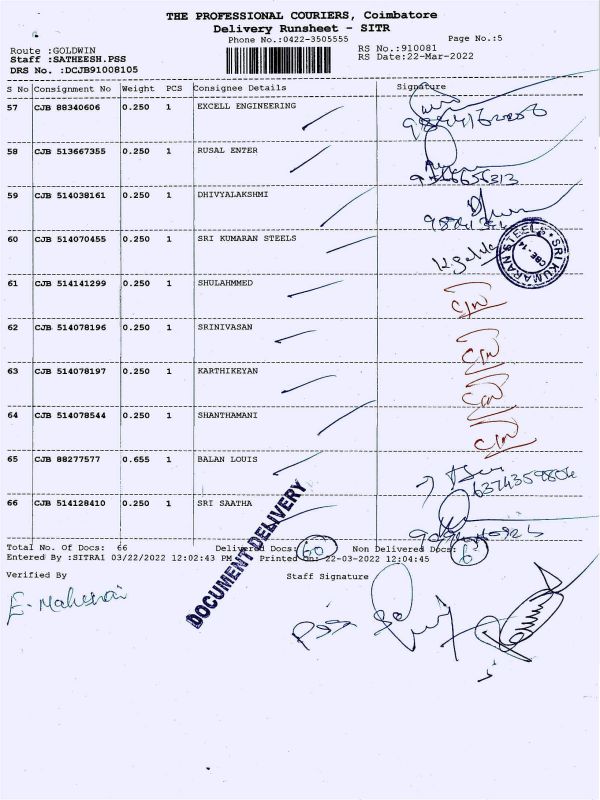 THE PROFESSIONAL COURIERS, Coimbatore
Delivery Runsheet - SITR
Phone No.:0422-3505555 Page No.:5
Route :GOLDWIN RS No.:910081
Staff :SATHEESH.PSS RS Date:22-Mar-2022
DRS No. :DCJB91008105
S No Consignment No Weight PCS Consignee Details Signature
57 CJB 88340606 0.250 1 EXCELL ENGINEERING
58 CJB 513667355 0.250 1 RUSAL ENTER
59 CJB 514038161 0.250 1 DHIVYALAKSHMI
60 CJB 514070455 0.250 1 SRI KUMARAN STEELS
SRI KUMARAN STEELS
CBE - 14
61 CJB 514141299 0.250 1 SHULAHMMED
62 CJB 514078196 0.250 1 SRINIVASAN
63 CJB 514078197 0.250 1 KARTHIKEYAN
64 CJB 514078544 0.250 1 SHANTHAMANI
65 CJB 88277577 0.655 1 BALAN LOUIS
6374359804
66 CJB 514128410 0.250 1 SRI SAATHA
Total No. Of Docs: 66 Delivered Docs: 60 Non Delivered Docs: 6
Entered By :SITRA1 03/22/2022 12:02:43 PM Printed On: 22-03-2022 12:04:45
DOCUMENT DELIVERY
Verified By Staff Signature
PSS